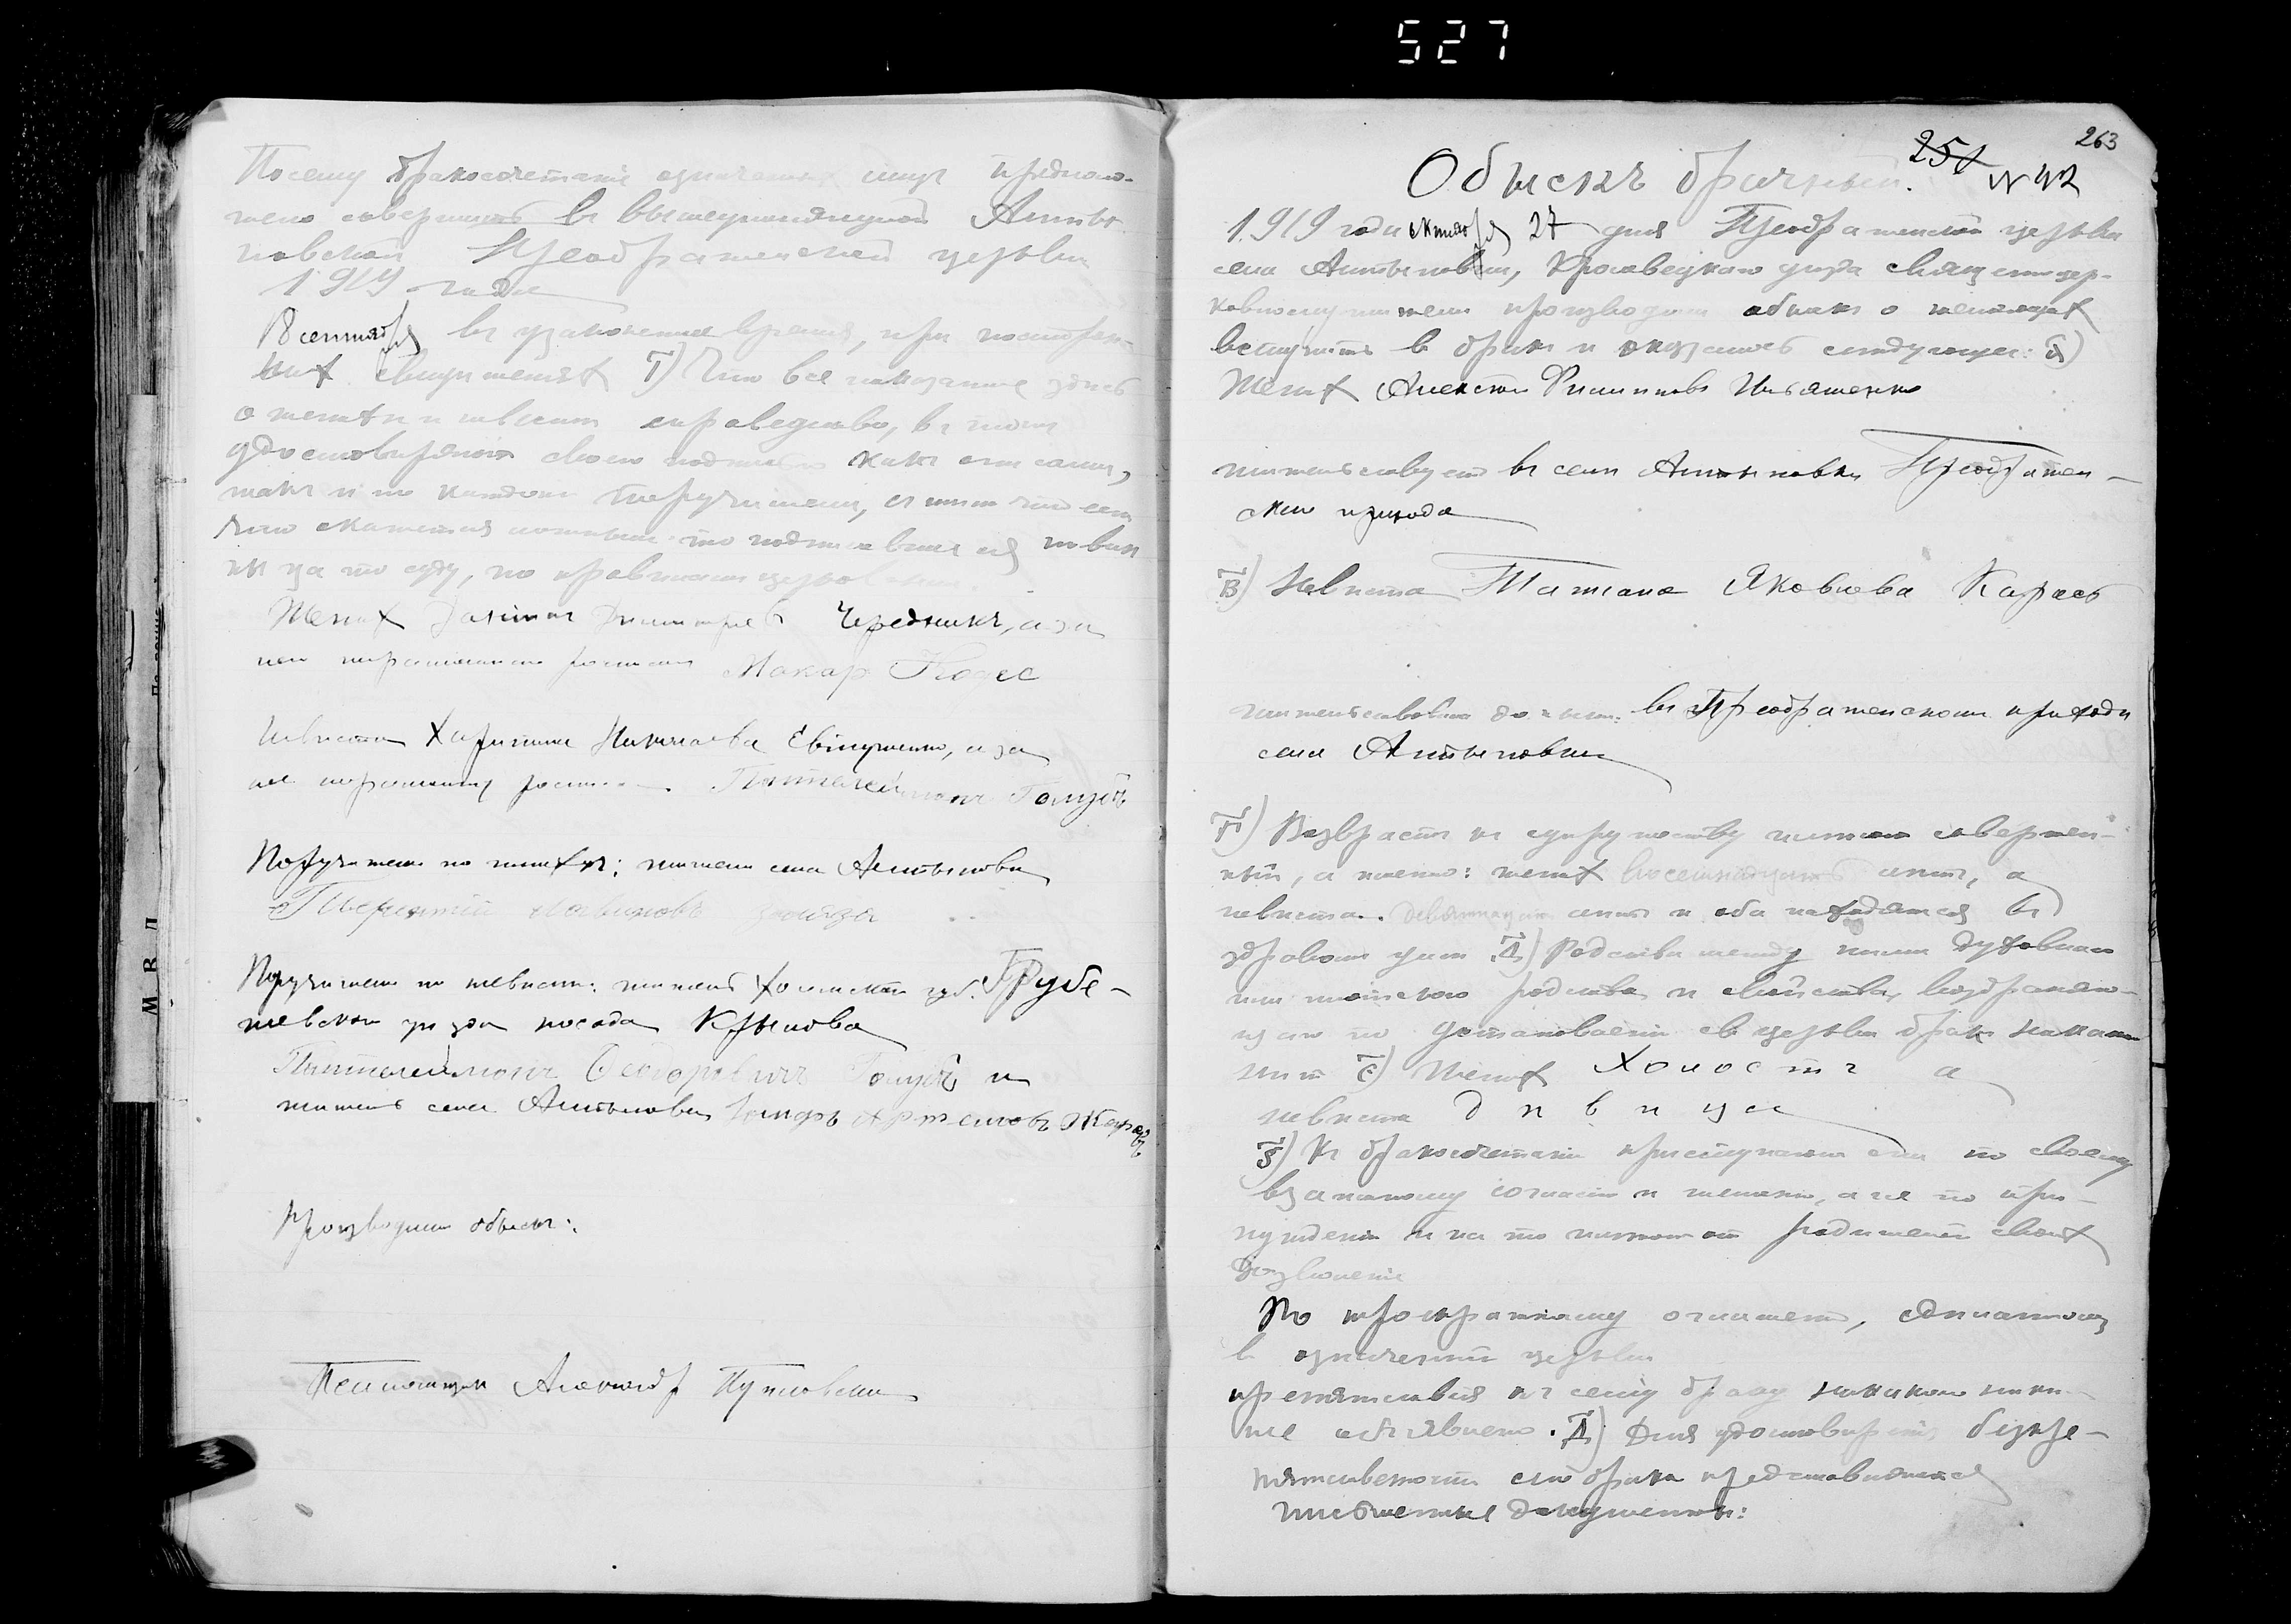 527
Посему бракосочетание означенных лиц предполо-
жено совершить въ вышеупомянутой Алты-
новской Преображенской церкви
1919 года
8 сентября въ узаконенное время, при посторон-
них свидетелях Г) Что все показанное здесь
о женихе и невесте справедливо, въ том
удостоверяют своею подписью какъ они сами,
такъ и по каждом поручители, с тем что если
что окажется ложным то подписавшиеся повин-
ны за то суду, по правилам церковным
Жених Димитриев Чередникъ, а за
него неграмотного росписался Макар
Невеста Харитина Николаева Евтушенко, а за
нее неграмотную росписался Пантелеймонъ Голубъ
Поручители по женихе: житель села Алтыновки
Поручители по невесте: житель Холмской губ. Грубе-
шевского уезда посада Крылова
Пантелеймонъ Феодоровичъ Голубъ и
житель села Алтыновки Артемовъ
Производили обыскъ:
Псаломщик Александр
263
251
N 42
Обыскъ брачный.
1919 года октября 27 дня Преображенской церкви
села Алтыновки, Кролевецкого уезда священно-цер-
ковнослужители производили обыскъ о желающих
вступить в бракъ и оказалось следующее: А)
Жених Алексей Филиппов Ильяшенко
жительствует въ селе Алтыновке Преображен-
ского прихода
В) Невеста Татиана Яковлева Карась
жительствовала доныне въ Преображенском приходе
села Алтыновки
Г) Возрастъ къ супружеству имеют совершен-
ный, а именно: жених восемнадцать летъ, а
невеста девятнадцать летъ и оба находятся въ
здравом уме Д) Родства между ними духовного
или плотского родства и свойства, возбраняю-
щего по установлению св церкви брак никакого
нет Е) Жених холостъ а
невеста девица
Ѕ) К бракосочетанию приступают они по своему
взаимному согласию и желанию, а не по при-
нуждению и на то имеют от родителей своих
дозволение
По троекратному оглашению, сделанному
в означенной церкви
препятствия къ сему браку никакого ником
не объявлено. Д) Для удостоверения безпре-
пятственности сего брака представляются
письменные документы: